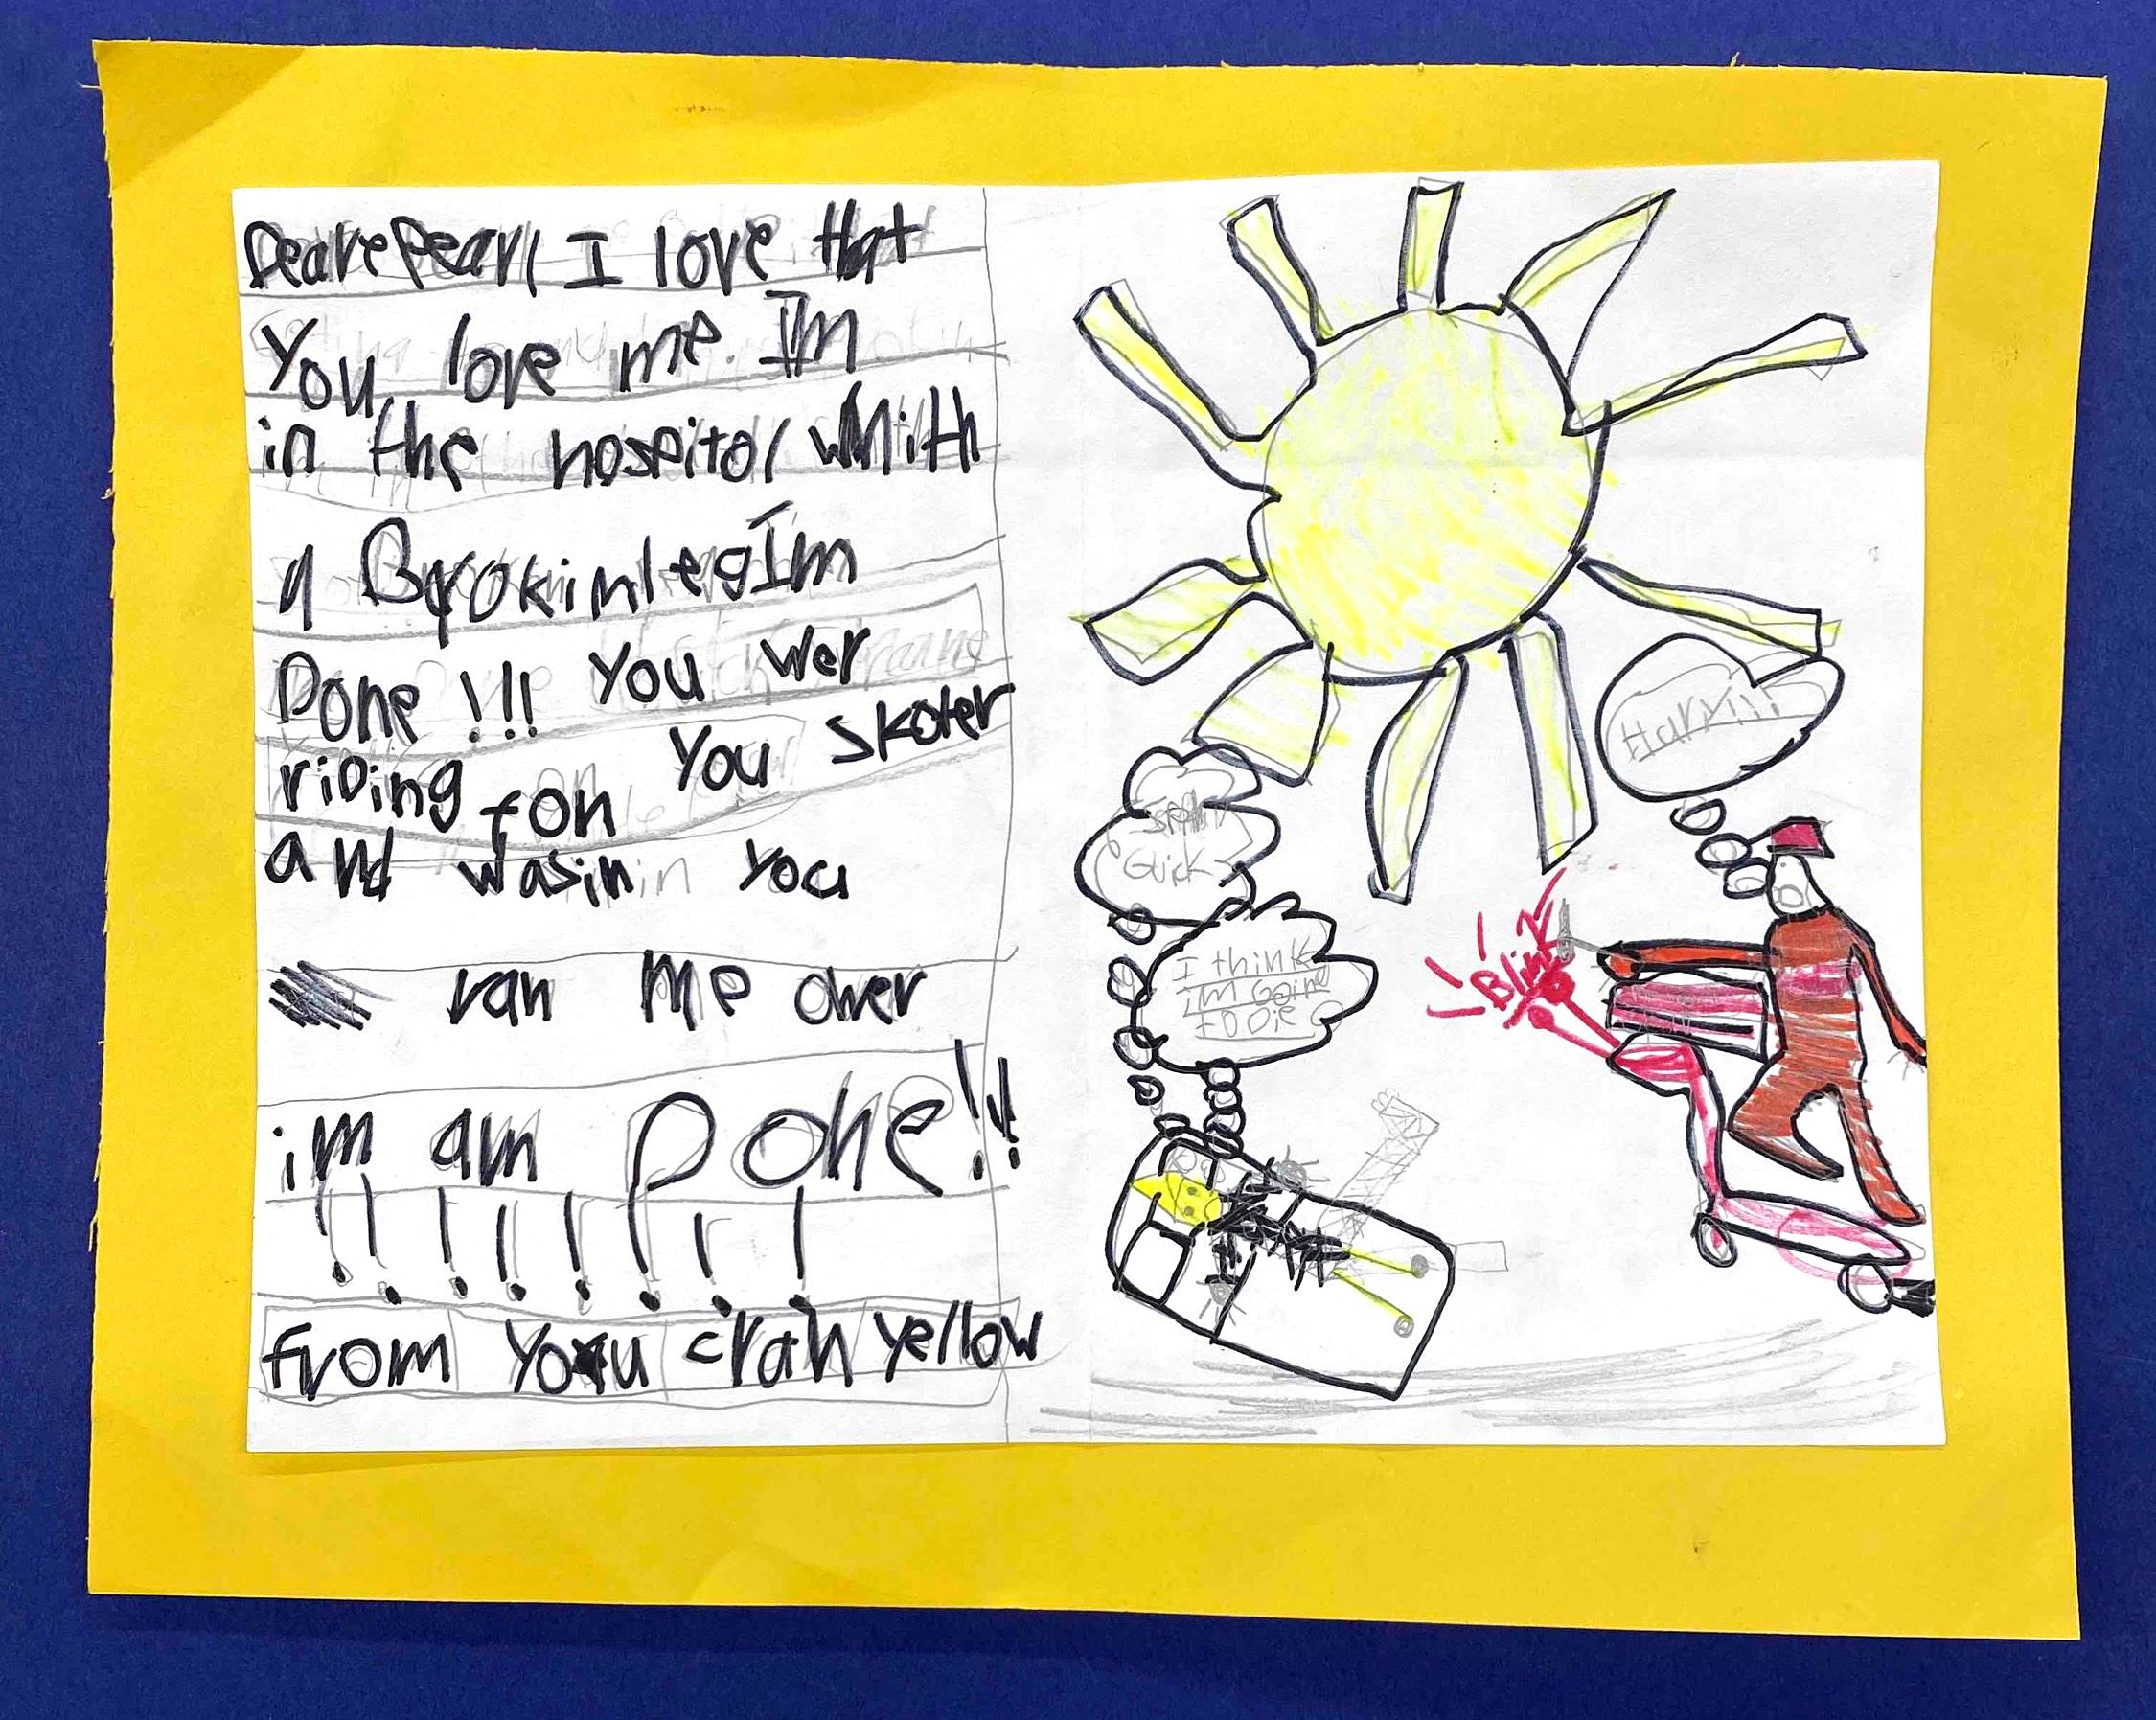 Deare pearl I love that
You love me. I'm
in the hospitol whith
a Brokin leg Im
Done !!! You wer
riDing fon You skoter
and wasin in you
ran me ower
im am Done!!!
!!!!!!!!
from You crah yellow
Harry!!!
Quick
I think
im Going
to Die
Blink